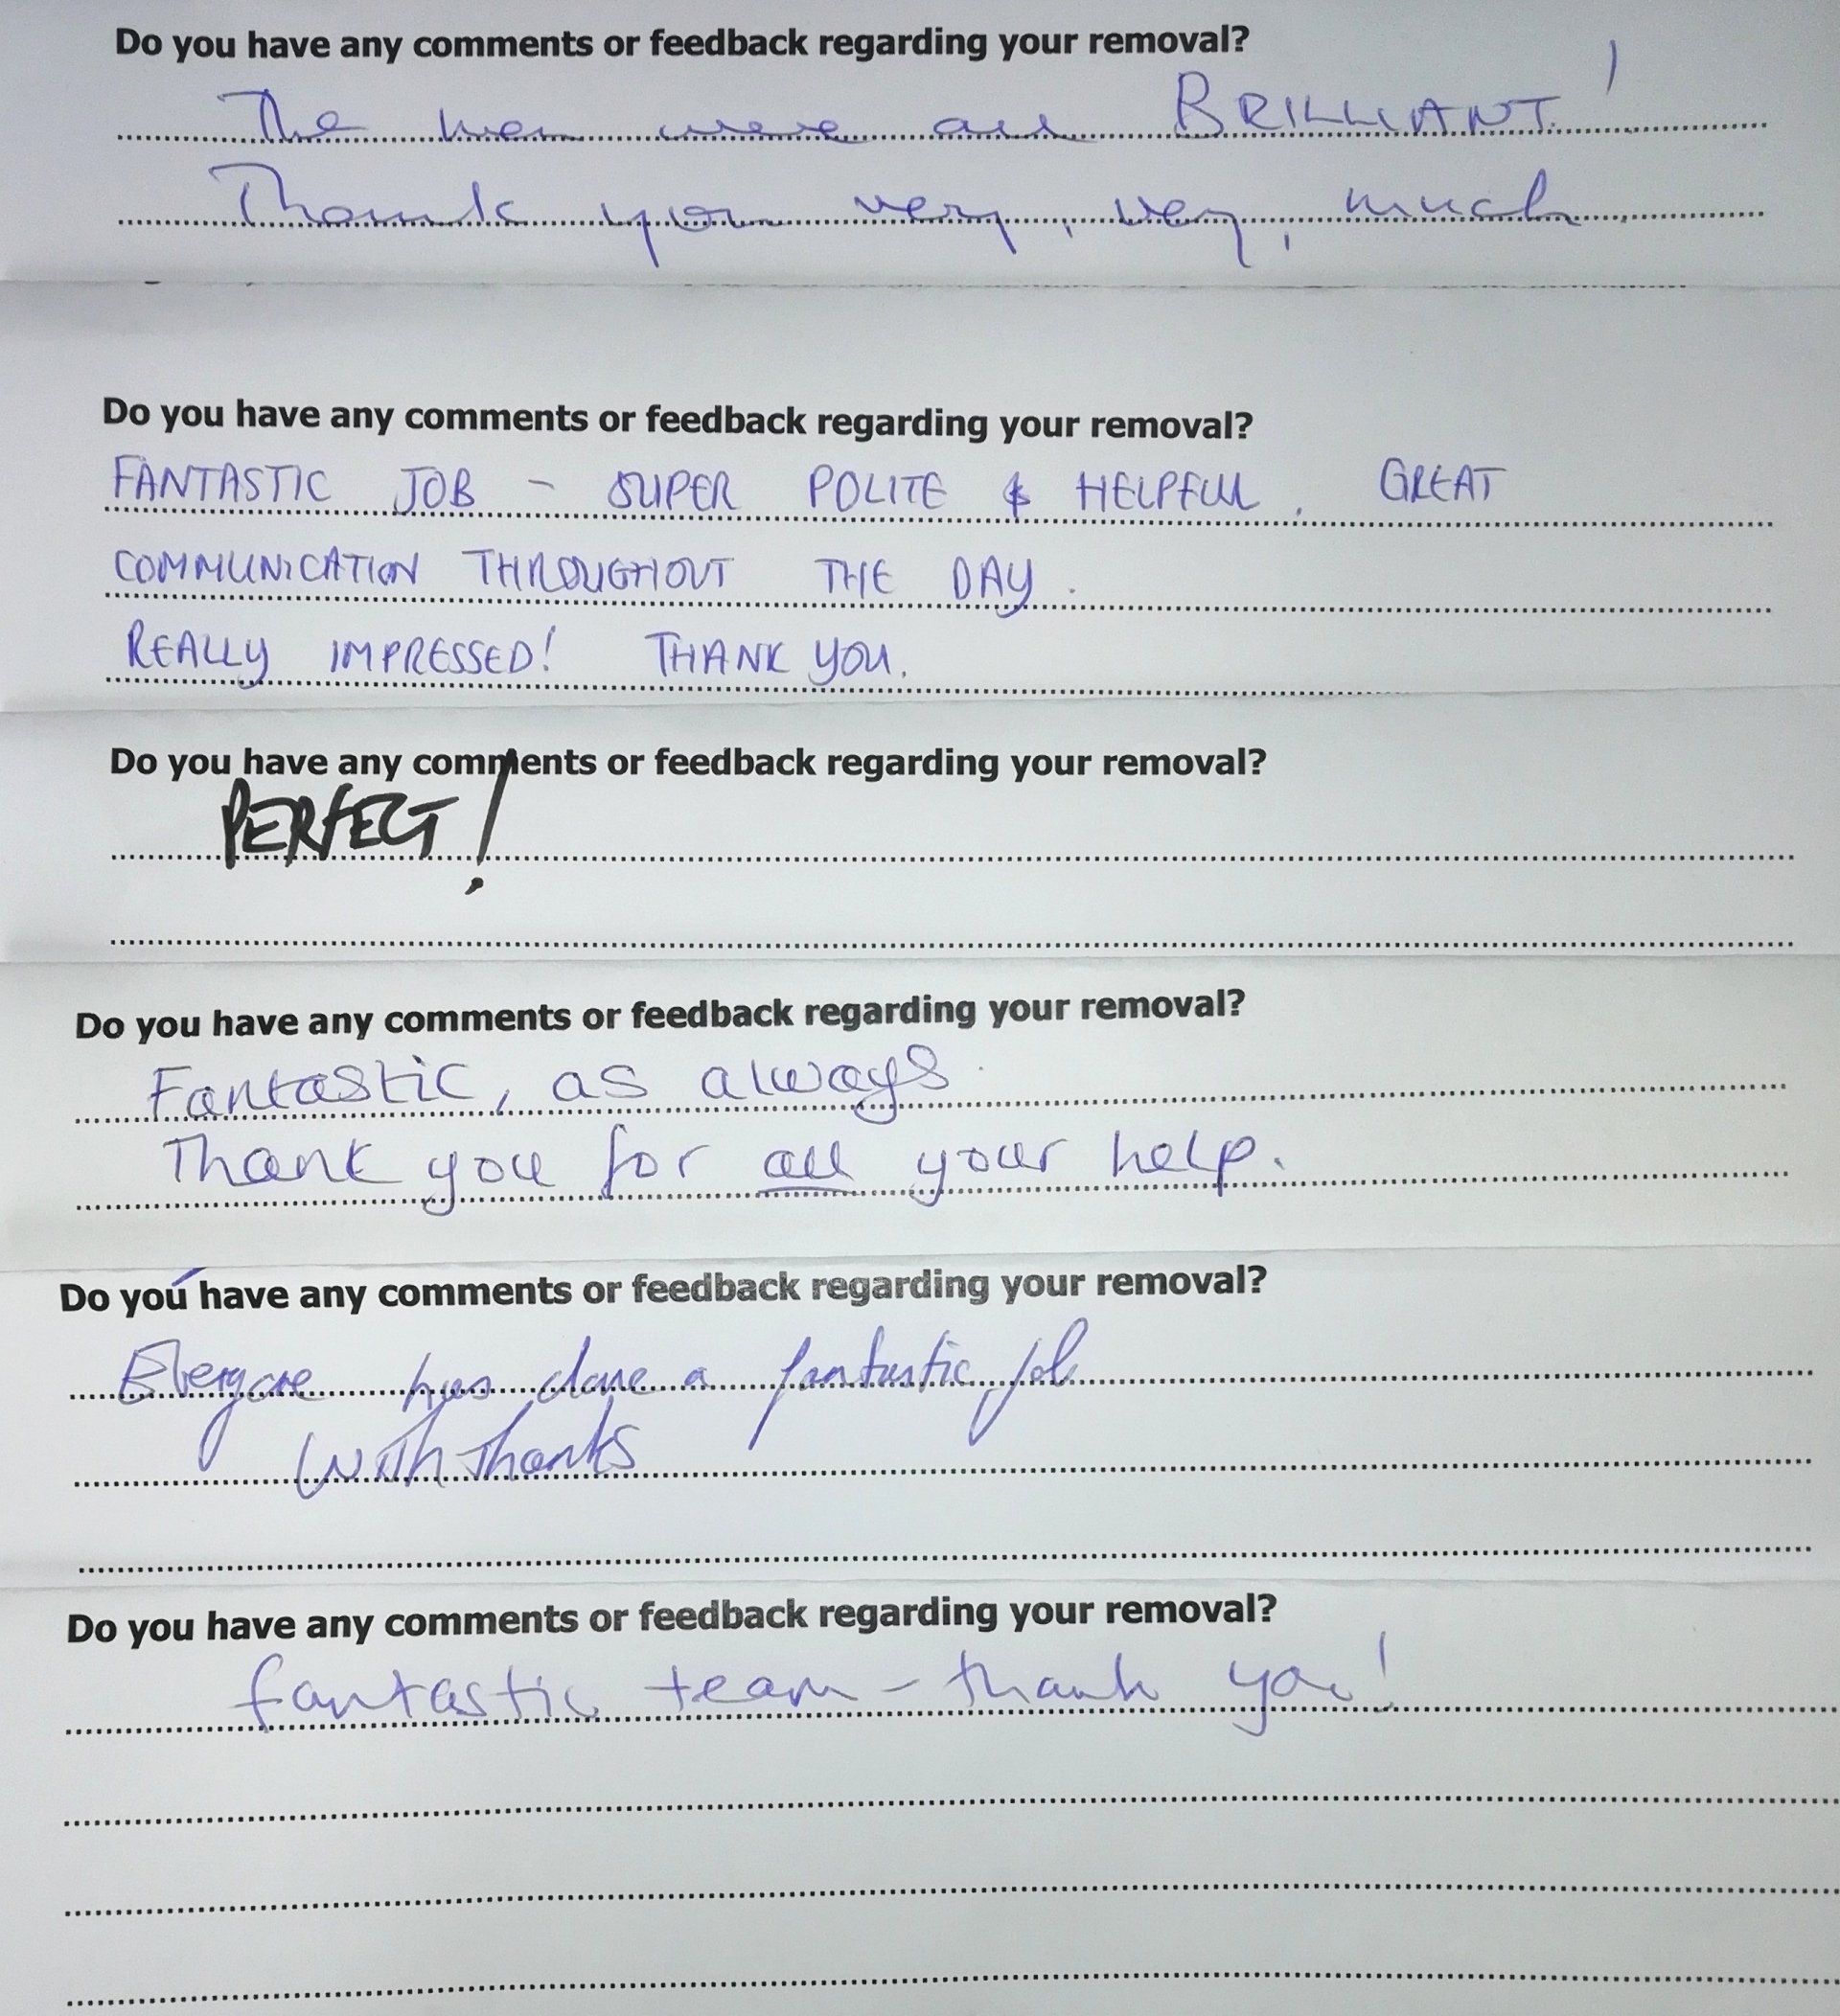 Do you have any comments or feedback regarding your removal?
The men were all BRILLIANT!
Thank you very, very, much.
Do you have any comments or feedback regarding your removal?
FANTASTIC JOB - SUPER POLITE & HELPFUL. GREAT
COMMUNICATION THROUGHOUT THE DAY.
REALLY IMPRESSED! THANK YOU.
Do you have any comments or feedback regarding your removal?
PERFECT!
Do you have any comments or feedback regarding your removal?
Fantastic, as always.
Thank you for all your help.
Do you have any comments or feedback regarding your removal?
Everyone has done a fantastic job
With Thanks
Do you have any comments or feedback regarding your removal?
fantastic team - thank you!